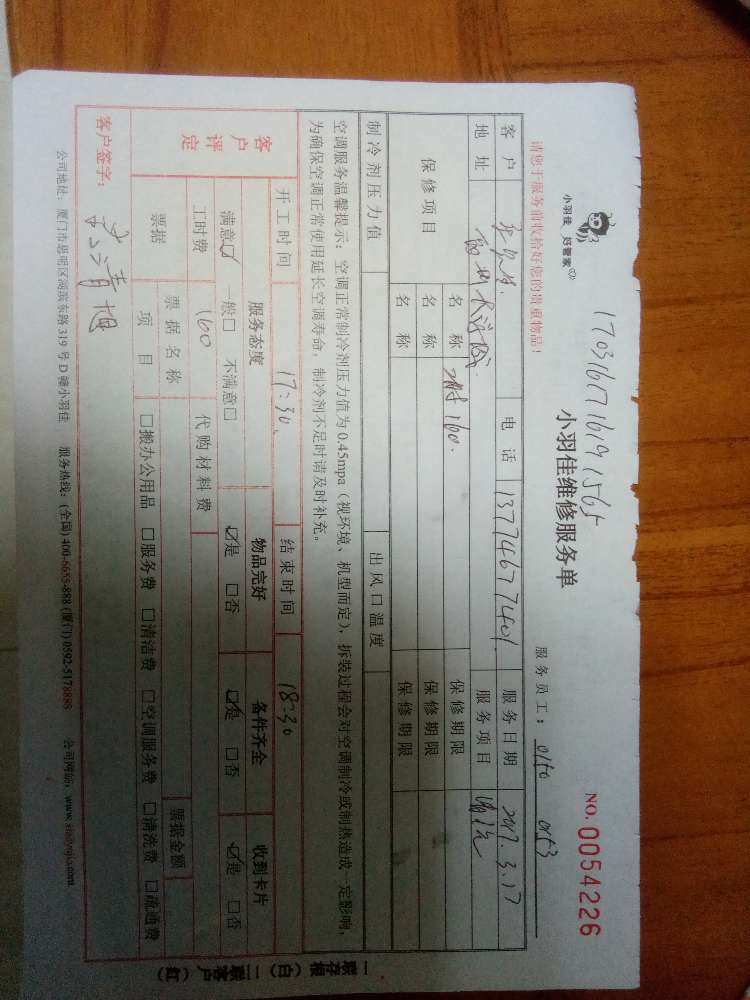 小羽佳 好管家
170316716191565
小羽佳维修服务单
NO.0054226
请您于服务前收拾好您的贵重物品!
服务员工: 0150 0153
客户 电话 13774677401 服务日期 2017.3.17
地址 服务项目
保修项目 名称 160. 保修期限
名称 保修期限
名称 保修期限
制冷剂压力值 出风口温度
空调服务温馨提示:空调正常制冷剂压力值为0.45mpa(视环境、机型而定),拆装过程会对空调制冷或制热造成一定影响,
为确保空调正常使用延长空调寿命,制冷剂不足时请及时补充。
开工时间 17:30 结束时间 18:30
客户评定 服务态度 物品完好 备件齐全 收到卡片
满意☑ 一般□ 不满意□ ☑是 □否 ☑是 □否 ☑是 □否
工时费 160 代购材料费
票据 票据名称 票据金额
项目 □搬办公用品 □服务费 □清洁费 □空调服务费 □清洗费 □疏通费
客户签字:
公司地址:厦门市思明区湖滨东路319号D幢小羽佳 服务热线:(全国)400-6655-888(厦门)0592-5178888 公司网站:www.xiaoyujia.com
一联存根(白)二联客户(红)